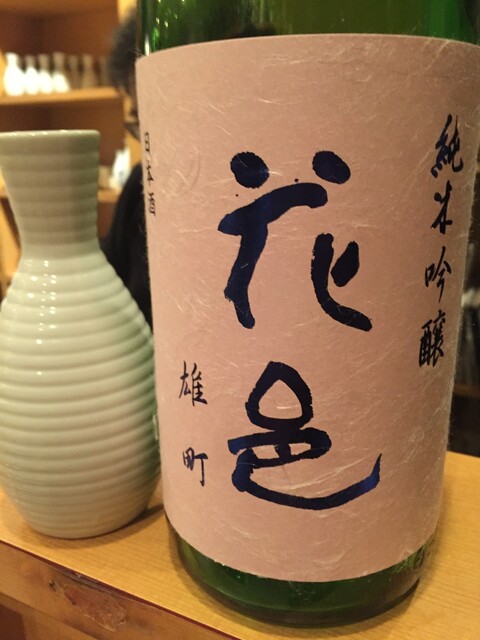 純米吟醸
花邑
雄町
日本酒